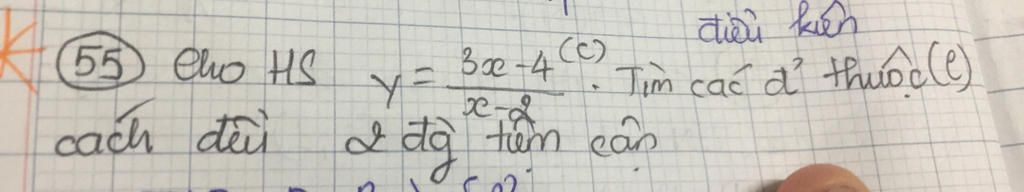 điều kiện
55 Cho HS y = \frac{3x-4}{x-2} (C). Tìm các đ' thuộc (C)
cách đều 2 đg tiệm cận